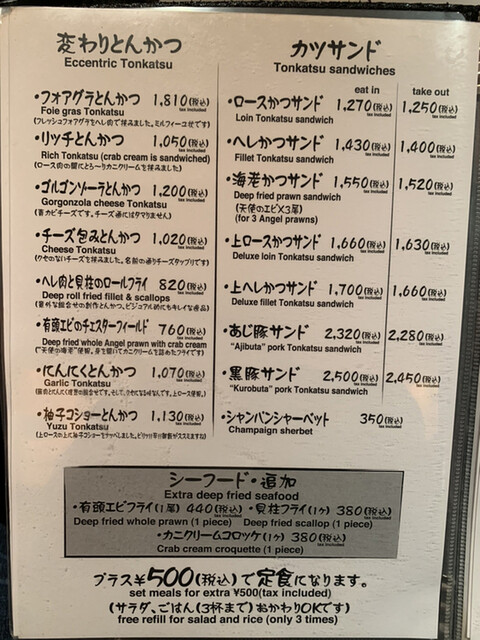 変わりとんかつ
Eccentric Tonkatsu
・フォアグラとんかつ 1,810(税込)
tax included
Foie gras Tonkatsu
(フレッシュフォアグラをヘレ肉で挟みました。ミルフィーユ仕立てです)
・リッチとんかつ 1,050(税込)
tax included
Rich Tonkatsu (crab cream is sandwiched)
(ロース肉の間にとろ〜りカニクリームを挟みました)
・ゴルゴンゾーラとんかつ 1,200(税込)
tax included
Gorgonzola cheese Tonkatsu
(青カビチーズです。チーズ通にはタマリません)
・チーズ包みとんかつ 1,020(税込)
tax included
Cheese Tonkatsu
(クセのないチーズを挟みました。名前の通りチーズタップリです)
・ヘレ肉と貝柱のロールフライ 820(税込)
tax included
Deep roll fried fillet & scallops
・有頭エビのチェスターフィールド 760(税込)
tax included
Deep fried whole Angel prawn with crab cream
・にんにくとんかつ 1,070(税込)
tax included
Garlic Tonkatsu
・柚子コショーとんかつ 1,130(税込)
tax included
Yuzu Tonkatsu
カツサンド
Tonkatsu sandwiches
eat in take out
・ロースかつサンド 1,270(税込) 1,250(税込)
tax included tax included
Loin Tonkatsu sandwich
・ヘレかつサンド 1,430(税込) 1,400(税込)
tax included tax included
Fillet Tonkatsu sandwich
・海老かつサンド 1,550(税込) 1,520(税込)
tax included tax included
Deep fried prawn sandwich
(天使のエビX3尾)
(for 3 Angel prawns)
・上ロースかつサンド 1,660(税込) 1,630(税込)
tax included tax included
Deluxe loin Tonkatsu sandwich
・上ヘレかつサンド 1,700(税込) 1,660(税込)
tax included tax included
Deluxe fillet Tonkatsu sandwich
・あじ豚サンド 2,320(税込) 2,280(税込)
tax included tax included
"Ajibuta" pork Tonkatsu sandwich
・黒豚サンド 2,500(税込) 2,450(税込)
tax included tax included
"Kurobuta" pork Tonkatsu sandwich
・シャンパンシャーベット 350(税込)
tax included
Champaign sherbet
シーフード・追加
Extra deep fried seafood
・有頭エビフライ(1尾) 440(税込) ・貝柱フライ(1ヶ) 380(税込)
tax included tax included
Deep fried whole prawn (1 piece) Deep fried scallop (1 piece)
・カニクリームコロッケ(1ヶ) 380(税込)
tax included
Crab cream croquette (1 piece)
プラス¥500(税込)で定食になります。
set meals for extra ¥500(tax included)
(サラダ、ごはん(3杯まで)おかわりOKです)
free refill for salad and rice (only 3 times)